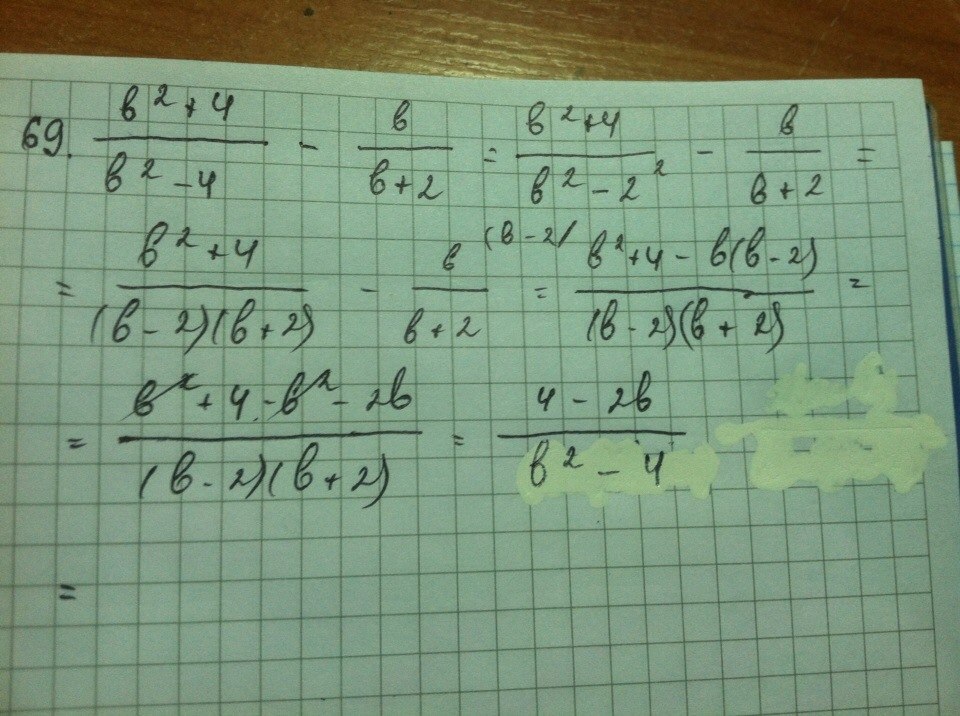 69. (в² + 4)/(в² - 4) - в/(в + 2) = (в² + 4)/(в² - 2²) - в/(в + 2) =
= (в² + 4)/((в - 2)(в + 2)) - в (в - 2)/(в + 2) = (в² + 4 - в(в - 2))/((в - 2)(в + 2)) =
= (в² + 4 - в² - 2в)/((в - 2)(в + 2)) = (4 - 2в)/(в² - 4)
=